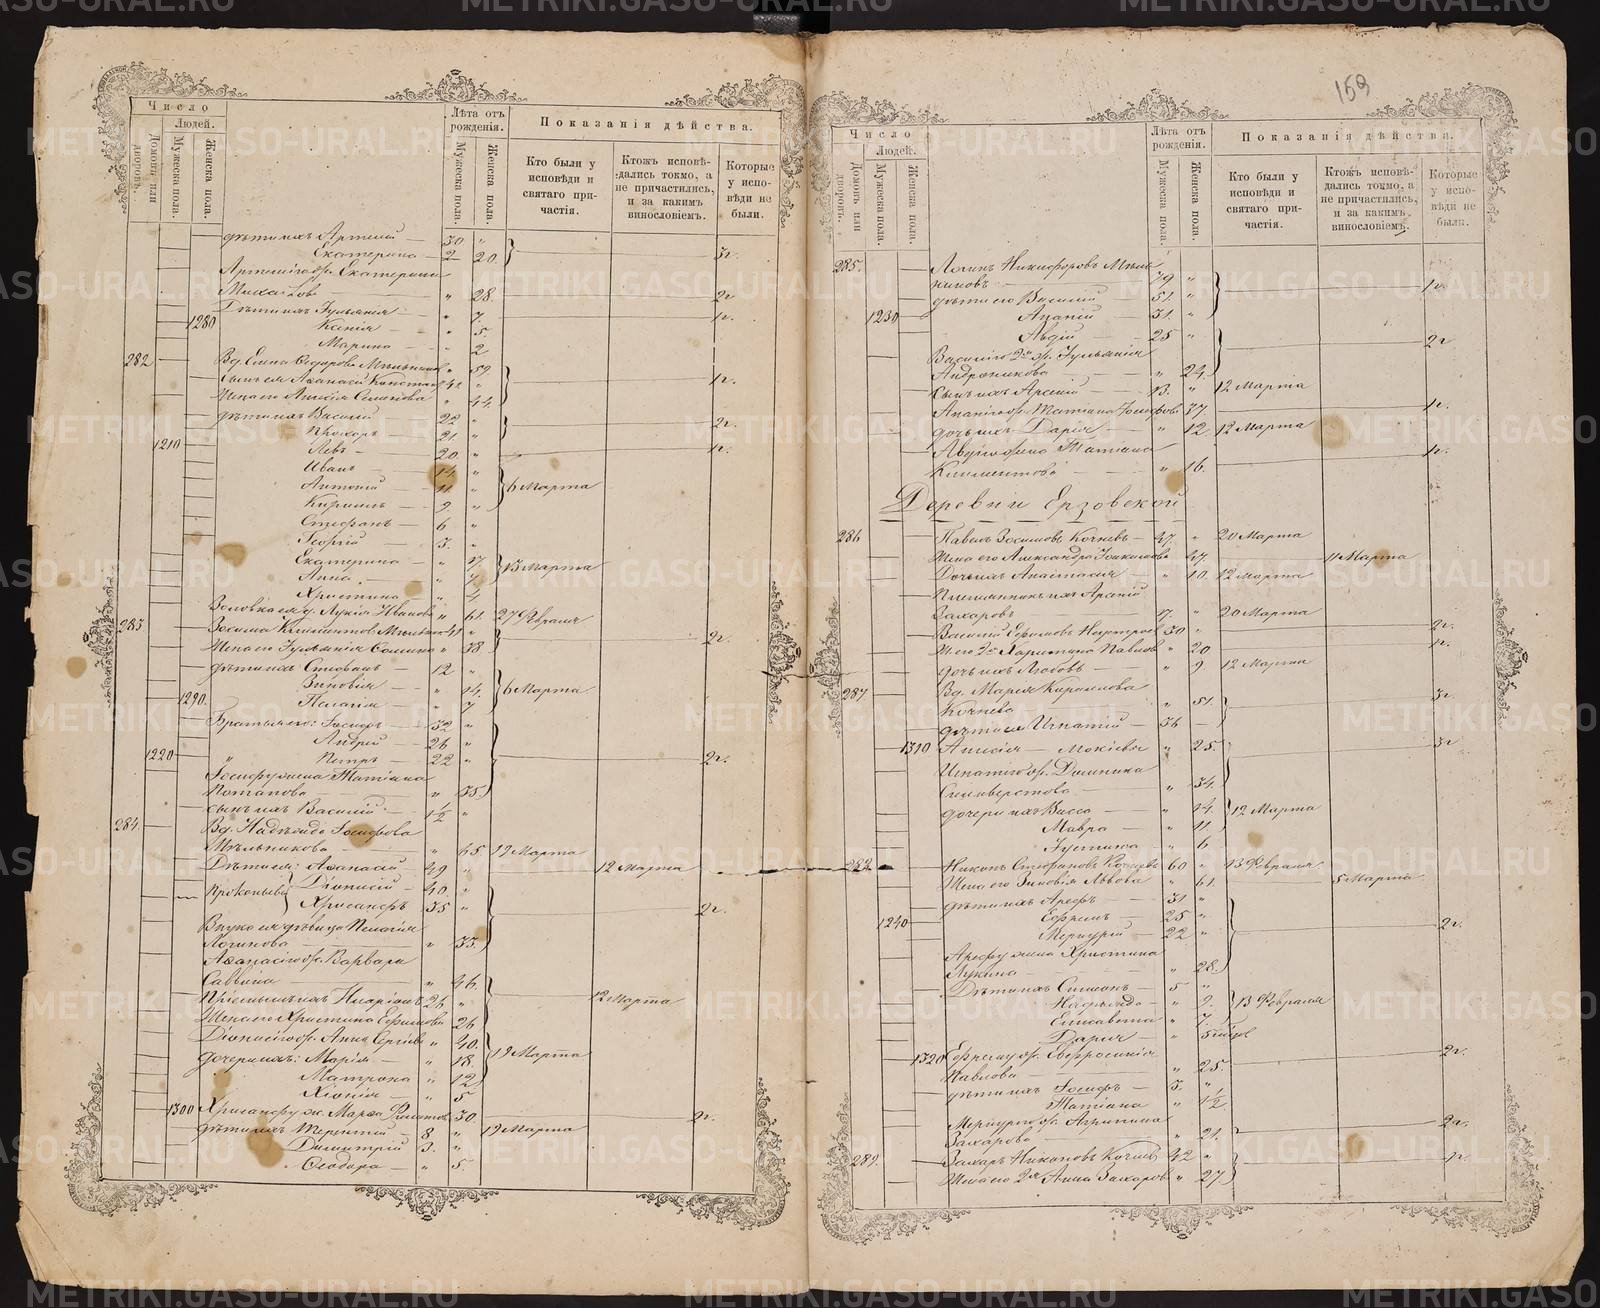 159
Число
Людей.
Домовъ или дворовъ.
Мужеска пола.
Женска пола.
Лѣта отъ рожденія.
Мужеска пола.
Женска пола.
Показанія дѣйства.
Кто были у исповѣди и святаго причастія.
Ктожъ исповѣдались токмо, а не причастились, и за какимъ винословіемъ.
Которые у исповѣди не были.
дѣти ихъ Артемій — 30 "
Екатерина — 20
Екатерина
28. 2г.
Дѣти ихъ Іуліанія " 7. 1г.
1280 Ксенія — " 5.
Марина — " 2
282 Вд. Елена " 59.
сынъ ея Аѳанасій 42 " 1г.
Жена его " 44.
дѣти ихъ Василій 22 " 2г.
Прохоръ — 21 "
1210 Левъ — 20. " 1г.
Иванъ — 14. "
Антоній — 11 " 6 Марта
Кириллъ — 9 "
Стефанъ — 6 "
Георгій — 3. "
Екатерина — " 17.
Анна — " 7. 13 Марта
Христина — " 4
Лукія Иванова " 61. 27 Февраля
283 Зосима 41 " 2г.
Жена его Іуліанія " 38
дѣти ихъ Стефанъ — 12 "
Зиновія — " 14. 6 Марта
1290. Пелагія — " 7
Братья его: Іосифъ — 32 "
Андрей — 26 "
1220 " Петръ — 22 " 2г.
Іосифу жена Татіана
Потапова — " 35.
сынъ ихъ Василій 1½ "
284. Вд. Надежда Іосифова
Мѣльникова — " 65. 19 Марта
Дѣти ея: Аѳанасій 49 " 12 Марта
Прокопьевы Діонисій — 40. "
Хрисанфъ 35 " 2г.
Внука ея дѣвица Пелагія
Логинова — " 33.
Аѳанасію ж. Варвара
Саввина — " 46.
Пріемышъ ихъ Иларіонъ 26 " 12 Марта
Жена его Христина Ефимова " 26
Діонисію ж. Анна Сергіева " 40.
дочери ихъ: Марія — " 18. 19 Марта
Матрона " 12
Хіонія — " 5
1300 Хрисанфу ж. Марѳа " 30. 2г.
дѣти ихъ Терентій — 8 " 19 Марта
Димитрій 3. "
Ѳеодора — " 5.
Число
Людей.
Домовъ или дворовъ.
Мужеска пола.
Женска пола.
Лѣта отъ рожденія.
Мужеска пола.
Женска пола.
Показанія дѣйства.
Кто были у исповѣди и святаго причастія.
Ктожъ исповѣдались токмо, а не причастились, и за какимъ винословіемъ.
Которые у исповѣди не были.
285. Логинъ Никифоровъ Мѣль
никовъ — 79 " 1г.
дѣти его Василій 51. "
1230 Ананій — 31. "
Авдій — 25 " 2г.
Василію 2я ж. Іуліанія
Андроникова — " 24.
Сынъ ихъ Арсеній 13. " 12 Марта
Ананію ж. Татіана " 37. 1г.
дочь ихъ Дарія — " 12 12 Марта
Авдію жена Татіана 1г.
Климентова — " 16.
Деревни Ерзовской
286 Павелъ Зосимовъ Кочневъ — 47. " 20 Марта
Жена его Александра " 47. 11 Марта
Дочь ихъ Анастасія — " 10. 12 Марта
Племянникъ ихъ Арсеній
Захаровъ — 17. " 20 Марта
Василій Ефимовъ 30 " 2г.
Ж. его 2я Харитина Павлова " 20 1г.
дочь ихъ Любовь — " 9. 12 Марта
287 Вд. Марія
Кочнева — " 51. 3г.
дѣти ея Игнатій — 36 —
1310 Анисія — Мокіева " 25. 3г.
Игнатію ж. Домника
Силиверстова — " 34.
дочери ихъ Васса — " 14. 12 Марта
Мавра — " 11
Іустина " 6
288 Никонъ Стефановъ Кочневъ 60 " 13 Февраля
Жена его Зиновія Львова " 61. 5 Марта
дѣти ихъ Арефъ — 31 "
1240 Ефремъ — 25 " 2г.
Меркурій — 22 "
Арефу жена Христина
Лукина — " 28.
Дѣти ихъ Симеонъ — 5 "
Надежда — " 9. 13 Февраля
Елисавета " 7.
Дарія — " 5
1320 Ефрему ж. Евфросинія 2г.
Павлова — " 25.
дѣти ихъ Іосифъ — 3. "
Татіана " 1½
Меркурію ж. Агрипина 2г.
Захарова — " 21.
289. Захаръ Никоновъ Кочневъ 42 " 1г.
Жена его 2я Анна Захарова " 27
METRIKI.GASO-URAL.RU